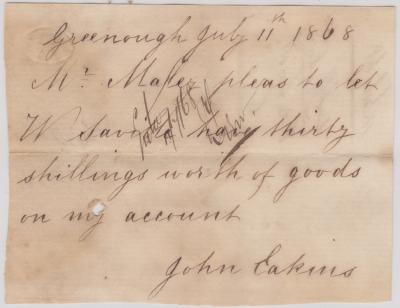 Greenough July 11th 1868
Mr. Maley pleas to let
W Savill have thirty
shillings worth of goods
on my account
John Eakins